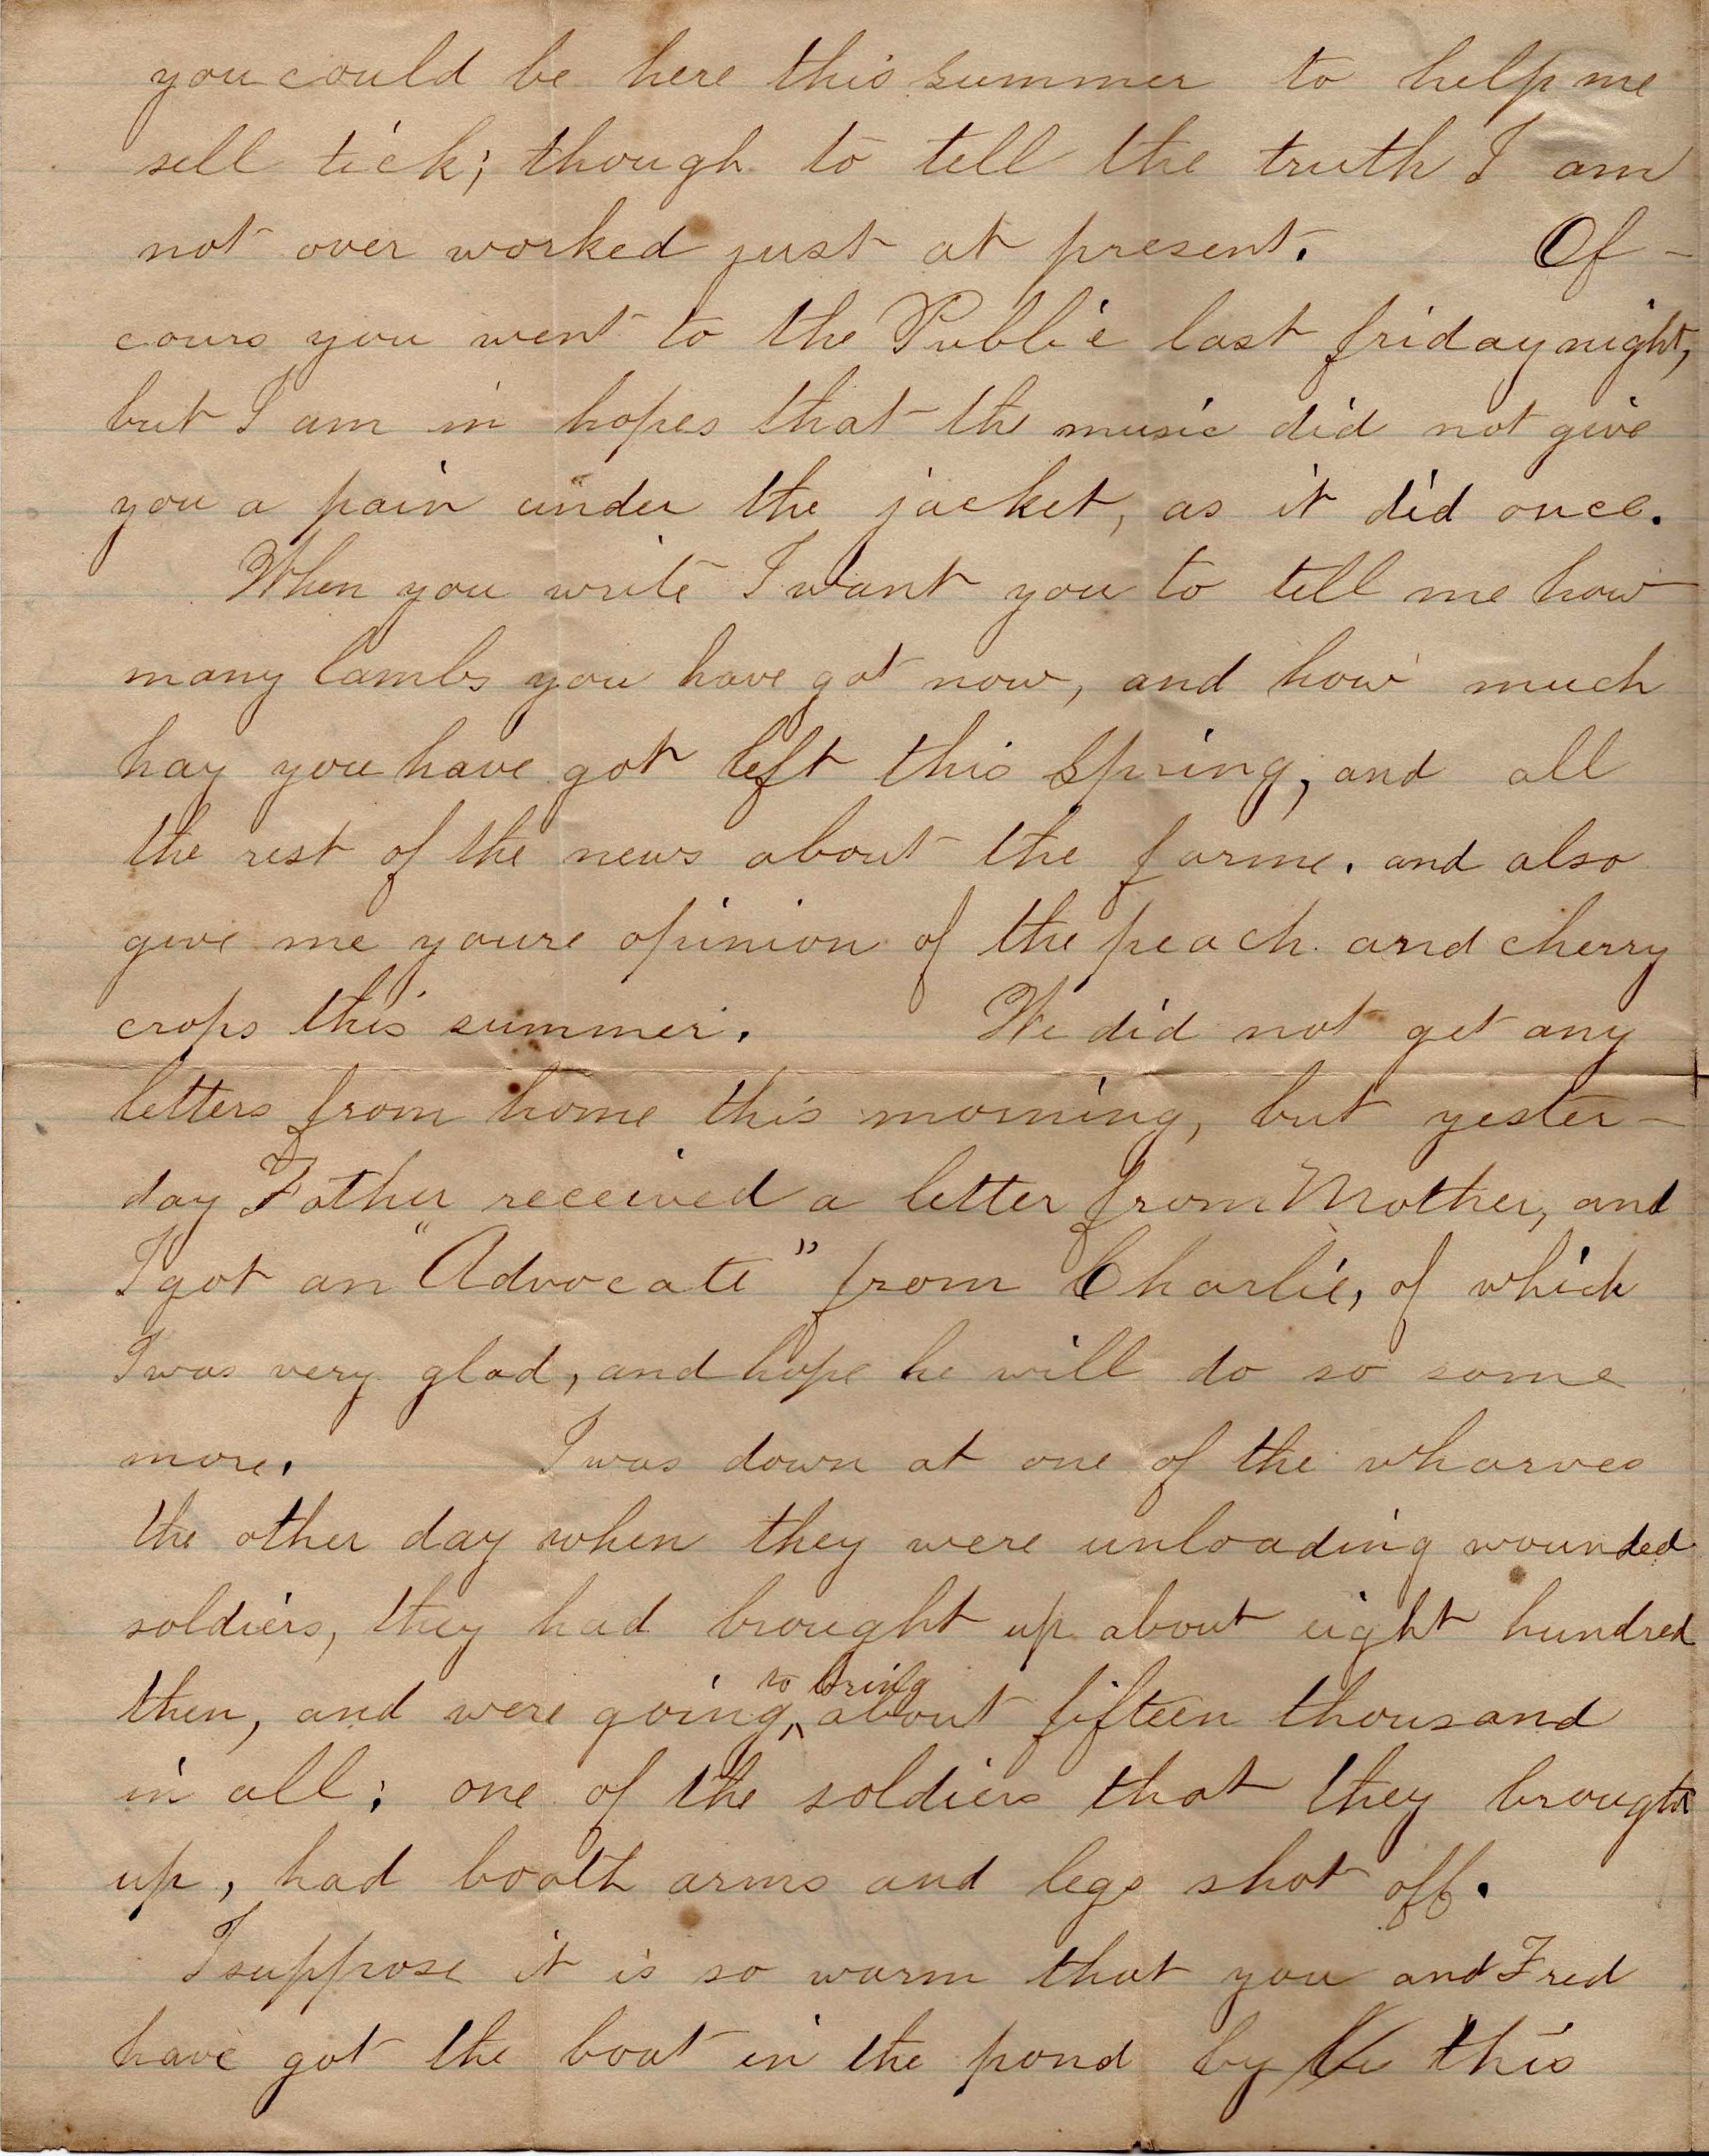 you could be here this summer to help me
sell tick; though to tell the truth I am
not over worked just at present. Of-
cours you went to the Public last friday night,
but I am in hopes that the music did not give
you a pain under the jacket, as it did once.
When you write I want you to tell me how
many lambs you have got now, and how much
hay you have got left this Spring, and all
the rest of the news about the farme. and also
give me youre opinion of the peach and cherry
crops this summer. We did not get any
letters from home this morning, but yester-
day Father received a letter from Mother, and
I got an "Advocate" from Charlie, of which
I was very glad, and hope he will do so some
more. I was down at one of the wharves
the other day when they were unloading wounded
soldiers, they had brought up about eight hundred
to bring
then, and were going, about fifteen thousand
in all; one of the soldiers that they brought
up, had booth arms and legs shot off.
I suppose it is so warm that you and Fred
have got the boat in the pond by this